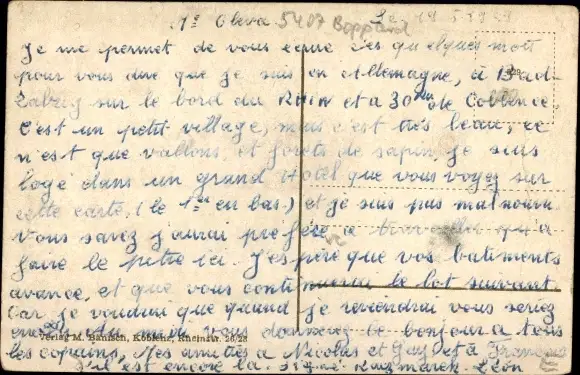 5407 Boppard
Je me permet de vous ecrire ces quelques mots
pour vous dire que je suis en Allemagne, à Bad-
sur le bord du Rhin et a 30 Km de Coblence
C'est un petit village, mais c'est très beau, ce
n'est que vallons, et forets de sapin, je suis
logé dans un grand Hotel que vous voyez sur
cette carte, (le 1er en bas) et je suis pas mal nourri
Vous savez j'aurai préféré a travailler qu'a
faire le pitre ici. J'espère que vos batiments
avance, et que vous le lot suivant.
Car je voudrai que quand je reviendrai vous seriez
vous donnerez le bonjour a tous
Verlag M. Bänisch, Koblenz, Rheinstr. 26/28
les copains, Mes amitiés a Nicolas et et à François
s'il est encore la. Signé Kazmarek Léon